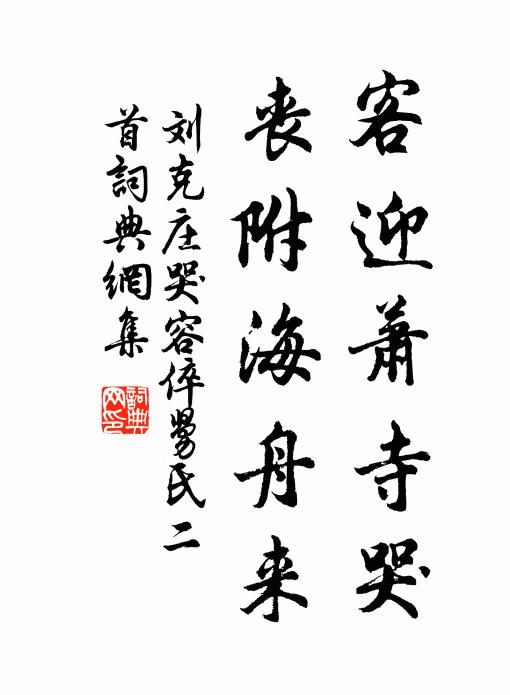 客迎萧寺哭
丧附海舟来
刘克庄哭容倅舅氏二
首詞典網集
詞典
网印